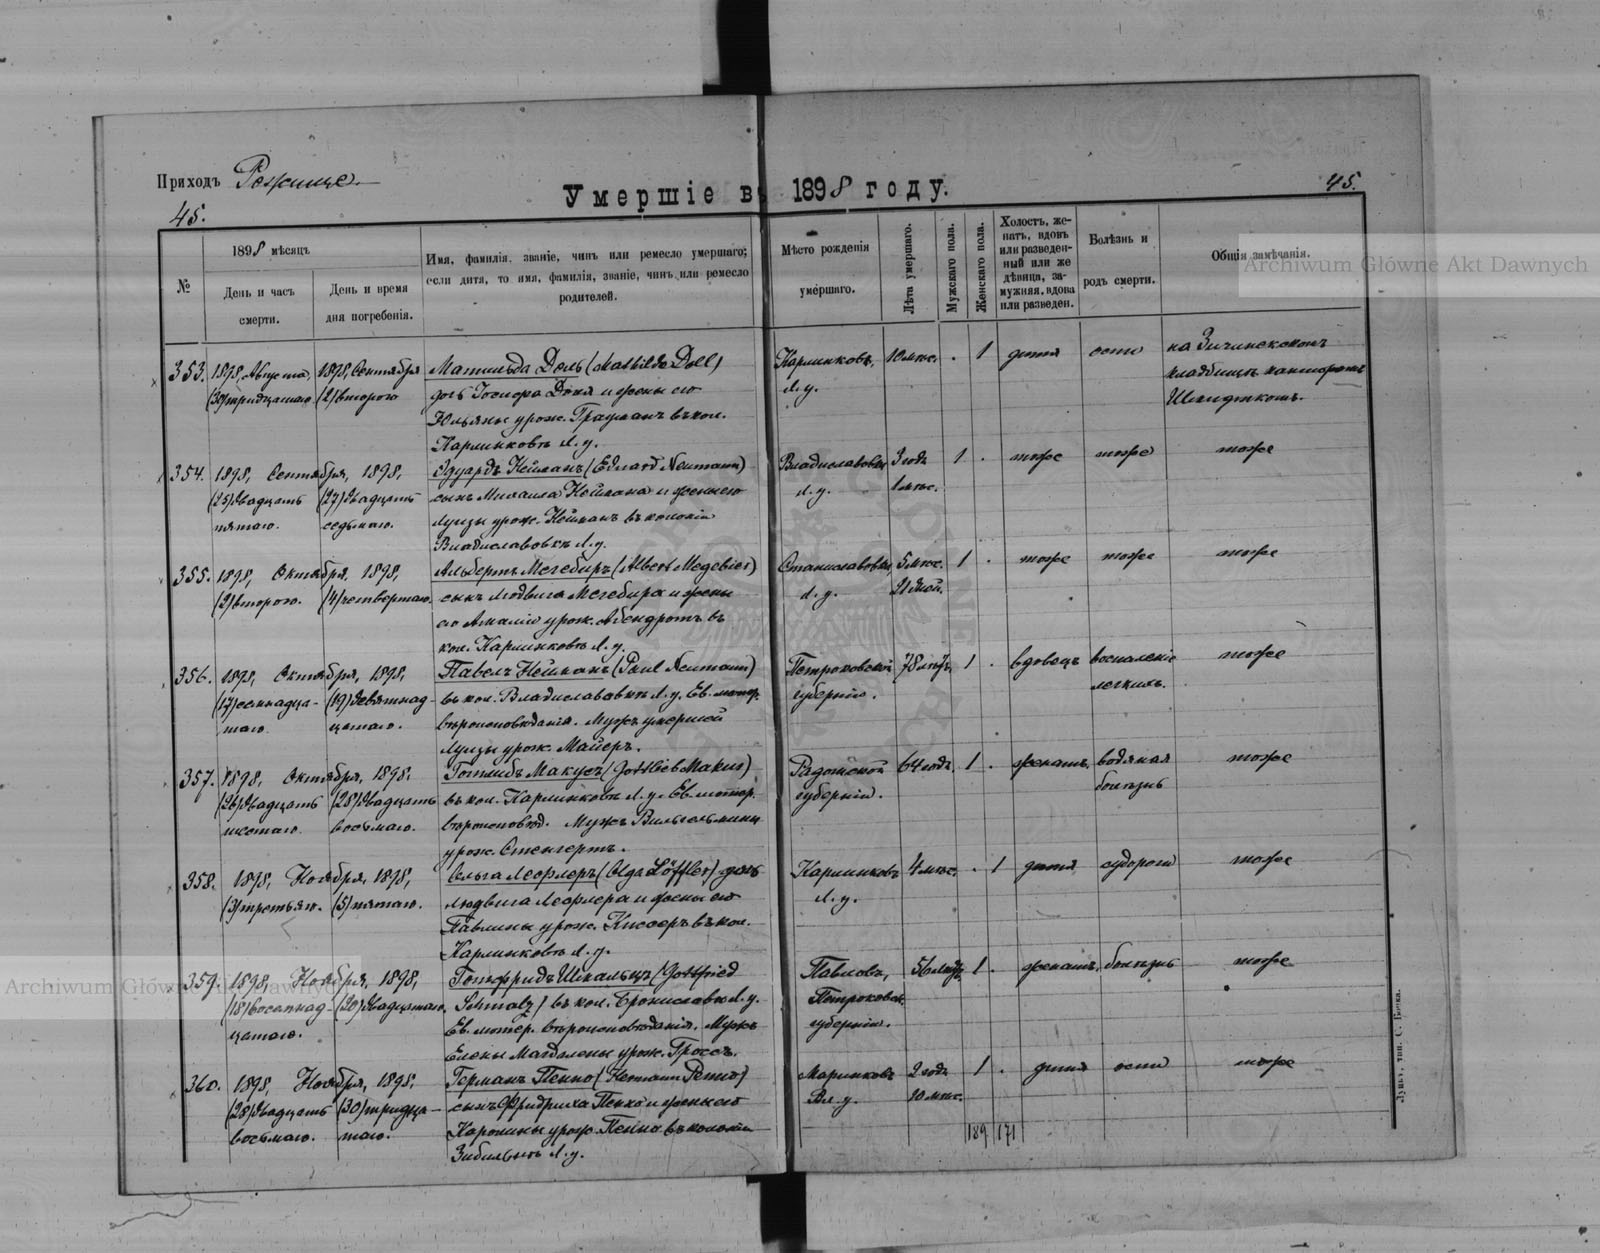 Приходъ Рожище.
Умершіе въ 1898 году.
45.
45.
№
1898 мѣсяцъ
День и часъ смерти.
День и время дня погребенія.
Имя, фамилія, званіе, чинъ или ремесло умершаго;
если дитя, то имя, фамилія, званіе, чинъ или ремесло
родителей.
Мѣсто рожденія
умершаго.
Лѣта умершаго.
Мужскаго пола.
Женскаго пола.
Холостъ, же-
натъ, вдовъ
или разведен-
ный или же
дѣвица, за-
мужняя, вдова
или разведен.
Болѣзнь и
родъ смерти.
Общія замѣчанія.
353. 1898, Августа, 1898, Сентября Матильда Доль (Mathilde Doll) Карлинковъ, 10 мѣс. . 1 дитя оспа на
(30) тридцатаго (2) второго дочь Доля и жены его Л. у. кладбищѣ канторомъ
Юльяны урож. Грауманъ въ кол. Шмидткомъ.
Карлинковѣ Л. у.
354. 1898, Сентября, 1898, Эдуардъ Нейманъ (Eduard Neumann) Владиславовка 3 года 1 . тоже тоже тоже
(25) двадцать (27) двадцать сынъ Михаила Неймана и жены его Л. у. 1 мѣс.
пятаго. седьмаго. Луизы урож. Нейманъ въ колоніи
Владиславовкѣ Л. у.
355. 1898, Октября, 1898, Альбертъ Мегебиръ (Albert Megebier) Станиславовка, 5 мѣс. 1 . тоже тоже тоже
(2) второго. (4) четвертаго. сынъ Людвига Мегебира и жены Л. у. 21 дней.
его Амаліи урож. Абендротъ въ
кол. Карлинковѣ Л. у.
356. 1898, Октября, 1898, Павелъ Нейманъ (Paul Neumann) Петроковской 78 лѣтъ 1 . вдовецъ воспаленіе тоже
(17) семнадца- (19) девятнад- въ кол. Владиславовкѣ Л. у. Ев. лютер. губерніи. легкихъ.
таго. цатаго. вѣроисповѣданія. Мужъ умершей
Луизы урож. Майеръ.
357. 1898, Октября, 1898, Готлибъ Макусъ (Gottlieb Makus) Радомской 64 года 1 . женатъ. водяная тоже
(26) двадцать (28) двадцать въ кол. Карлинковѣ Л. у. Ев. лютер. губерніи. болѣзнь
шестаго. восьмаго. вѣроисповѣд. Мужъ Вильгельмины
урож. Стенгертъ.
358. 1898, Ноября, 1898, Ольга Лефлеръ (Olga Löffler) дочь Карлинковъ 4 мѣс. . 1 дитя судороги тоже
(3) третьяго. (5) пятаго. Людвига Лефлера и жены его Л. у.
Павлины урож. въ кол.
Карлинковѣ Л. у.
359. 1898, Ноября, 1898, Готфридъ Шмальцъ (Gottfried Павловъ, 56 лѣтъ 1 . женатъ. болѣзнь тоже
(18) восемнад- (20) двадцатаго. Schmalz) въ кол. Брониславкѣ Л. у. Петроковск.
цатаго. Ев. лютер. вѣроисповѣданія. Мужъ губерніи.
Елены Магдалены урож. Гроссъ.
360. 1898, Ноября, 1898, Германъ Пенно (Hermann Penno) Марлинковъ 2 года 1 . дитя оспа тоже
(28) двадцать (30) тридца- сынъ Фридриха Пенно и жены его Вл. у. 10 мѣс.
восьмаго. таго. Каролины урож. Пенно въ колоніи
Л. у.
189 171
Луцкъ, тип. С. Бонка.
Archiwum Główne Akt Dawnych
Archiwum Główne Akt Dawnych